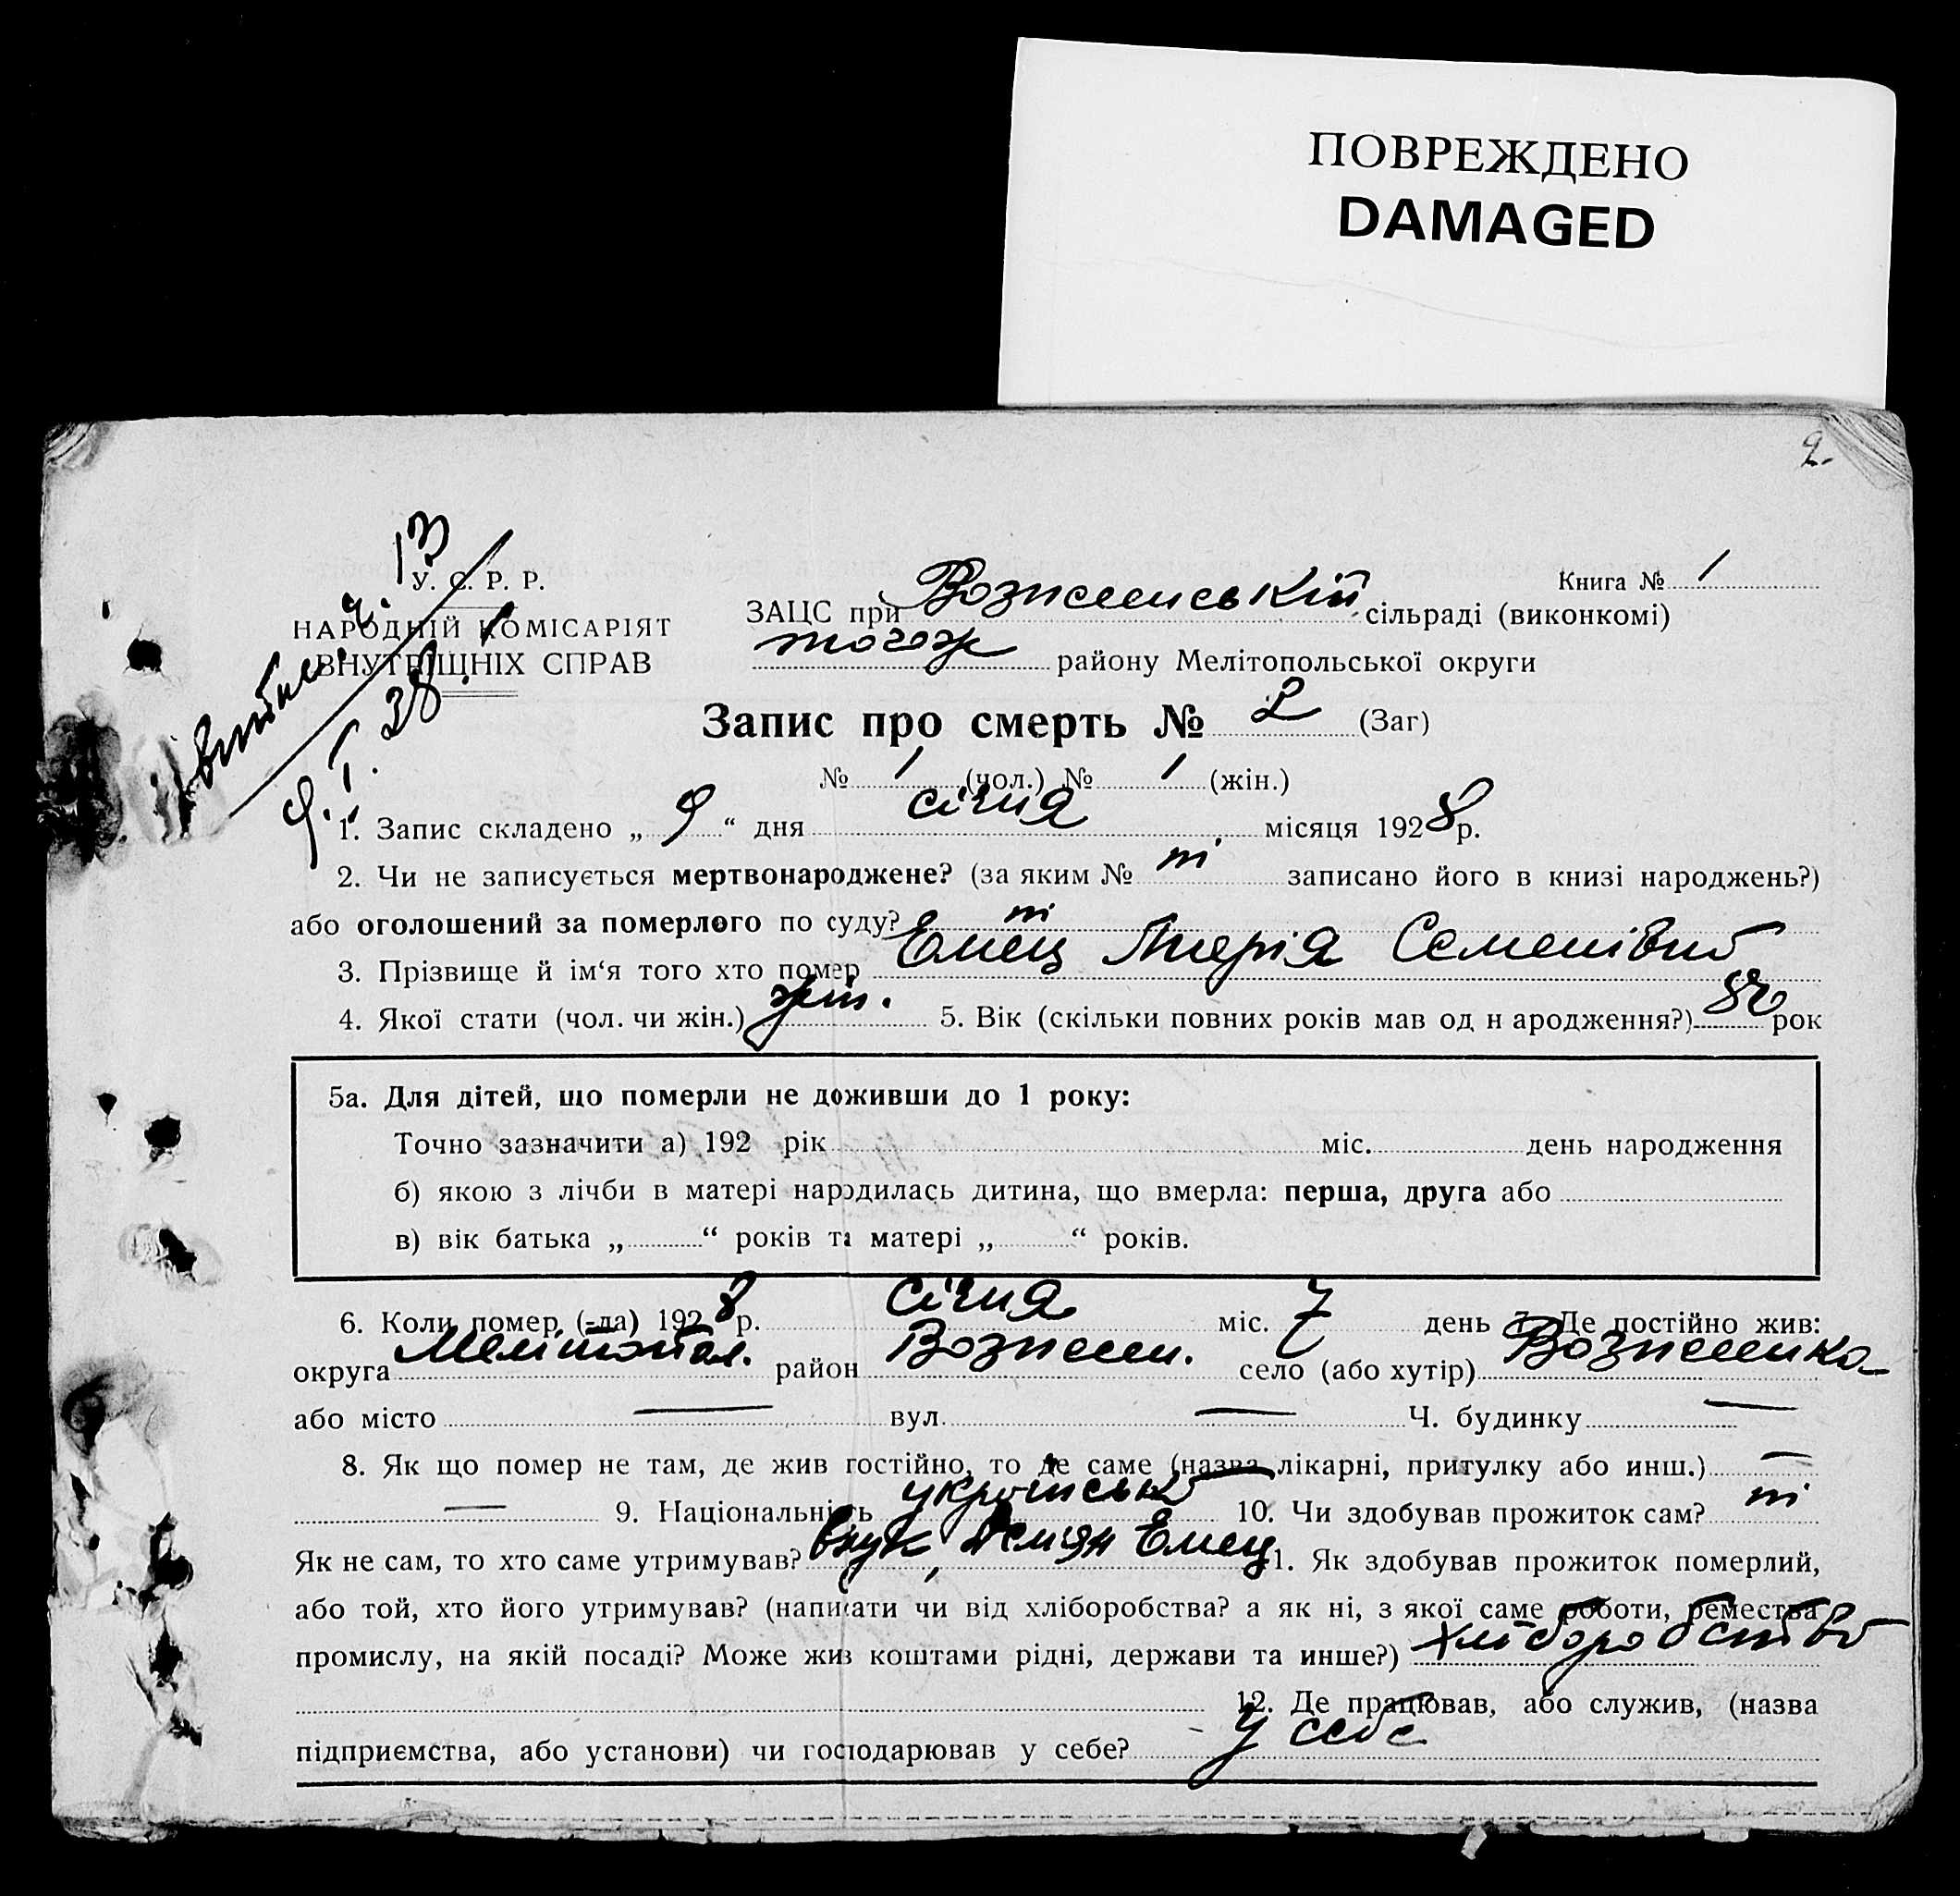 ПОВРЕЖДЕНО
DAMAGED
2.
13
У. С. Р. Р.
НАРОДНІЙ КОМІСАРІЯТ
ВНУТРІЩНІХ СПРАВ
9. I. 28.
Книга № 1
ЗАЦС при Вознесенській сільраді (виконкомі)
тогож району Мелітопольської округи
Запис про смерть № 2 (Заг)
№ 1 (чол.) № 1 (жін.)
1. Запис складено „ 9 “ дня січня місяця 1928 р.
2. Чи не записується мертвонароджене? (за яким № ні записано його в книзі народжень?)
або оголошений за померлого по суду? ні
3. Прізвище й ім‘я того хто помер Емец Марія Семенівна
4. Якої стати (чол. чи жін.) жін. 5. Вік (скільки повних років мав од н ародження?) рок
5а. Для дітей, що померли не доживши до 1 року:
Точно зазначити а) 192 рік міс. день народження
б) якою з лічби в матері народилась дитина, що вмерла: перша, друга або
в) вік батька „ “ років та матері „ “ років.
6. Коли помер (-ла) 1928 р. січня міс. 7 день 7. Де постійно жив:
округа Мелітопол. район Вознесен. село (або хутір) Вознесенка
або місто — вул. — Ч. будинку —
8. Як що помер не там, де жив постійно, то де саме (назва лікарні, притулку або инш.) —
— 9. Національність українська 10. Чи здобував прожиток сам? ні
Як не сам, то хто саме утримував? внук, Демян Емец 11. Як здобував прожиток померлий,
або той, хто його утримував? (написати чи від хліборобства? а як ні, з якої саме роботи, ремества
промислу, на якій посаді? Може жив коштами рідні, держави та инше?) хліборобство
12. Де працював, або служив, (назва
підприємства, або установи) чи господарював у себе? у себе